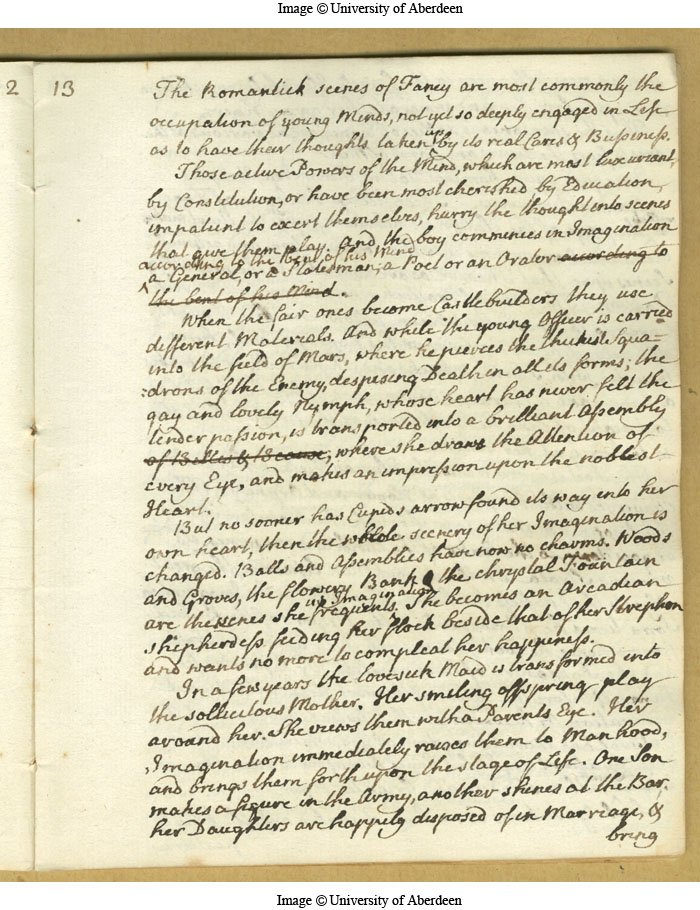 Image © University of Aberdeen
2 13
The Romantick scenes of Fancy are most commonly the
occupation of young Minds, not yet so deeply engaged in Life
as to have their thoughts taken up by its real Cares & Bussiness.
Those active Powers of the Mind, which are most luxuriant
by Constitution, or have been most cherished by Education,
impatient to exert themselves, hurry the thought into scenes
that give them play. And the boy commences in Imagination
according to the bent of his Mind
a General, or a Statesman, a Poet or an Orator according to
the bent of his Mind.
When the fair ones become Castlebuilders they use
different Materials. And while the young Officer is carried
into the field of Mars, where he pierces the thickest Squa=
=drons of the Enemy, despising Death in all its forms; the
gay and lovely Nymph, whose heart has never felt the
tender passion, is transported into a brilliant Assembly
of Belles & Beaus, where she draws the Attention of
every Eye, and makes an impression upon the noblest
Heart.
But no sooner has Cupids arrow found its way into her
own heart, then the whole scenery of her Imagination is
changed. Balls and Assemblies have now no charms. Woods
and Groves, the flowery Bank & the chrystal Fountain
are the scenes she frequents in Imagination. She becomes an Arcadian
shipherdess feeding her flock beside that of her Strephon
and wants no more to compleat her happiness.
In a few years the lovesick Maid is transformed into
the sollicitous Mother. Her smiling offspring play
around her. She views them with a Parents Eye. Her
Imagination immediately raises them to Manhood,
and brings them forth upon the stage of Life. One Son
makes a figure in the Army, another shines at the Bar.
her Daughters are happily disposed of in Marriage, &
bring
Image © University of Aberdeen